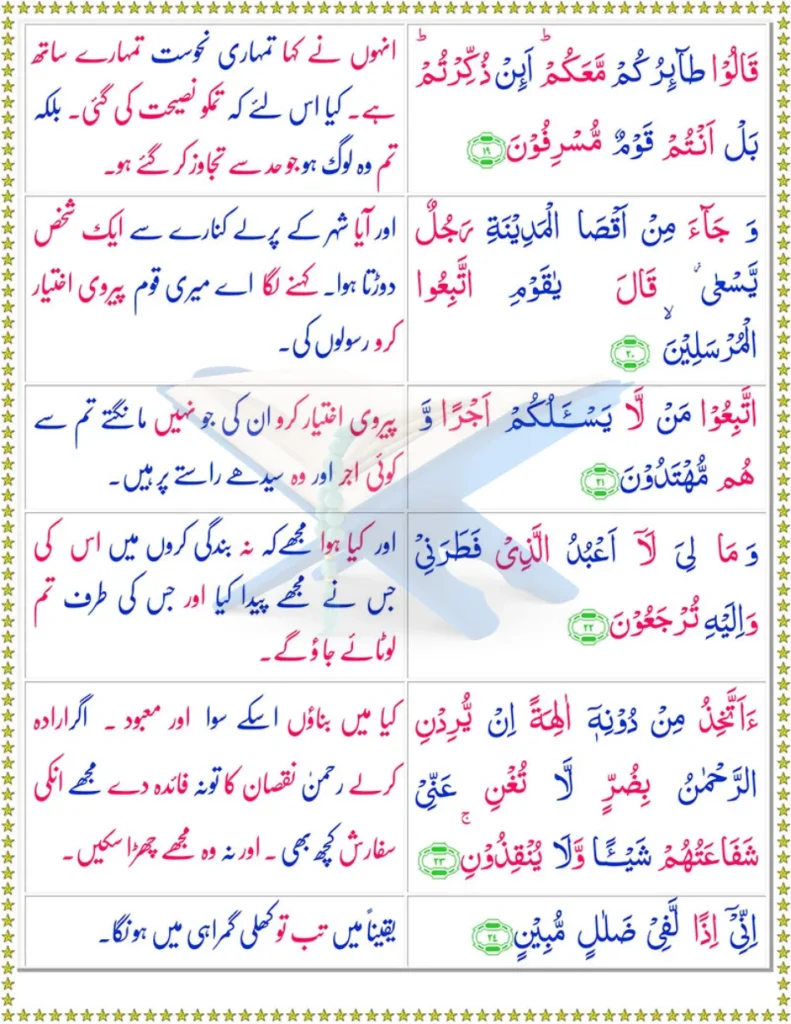 قَالُوْا طَآىِٕرُكُمْ مَّعَكُمْ ؕ اَىِٕنْ ذُكِّرْتُمْ ؕ
بَلْ اَنْتُمْ قَوْمٌ مُّسْرِفُوْنَ ۱۹
انہوں نے کہا تمہاری نحوست تمہارے ساتھ
ہے۔ کیا اس لئے کہ تمکو نصیحت کی گئی۔ بلکہ
تم وہ لوگ ہو جو حد سے تجاوز کر گئے ہو۔
وَ جَآءَ مِنْ اَقْصَا الْمَدِيْنَةِ رَجُلٌ
يَّسْعٰى ۫ قَالَ يٰقَوْمِ اتَّبِعُوا
الْمُرْسَلِيْنَ ۙ ۲۰
اور آیا شہر کے پرلے کنارے سے ایک شخص
دوڑتا ہوا۔ کہنے لگا اے میری قوم پیروی اختیار
کرو رسولوں کی۔
اتَّبِعُوْا مَنْ لَّا يَسْـَٔلُكُمْ اَجْرًا وَّ
هُم مُّهْتَدُوْنَ ۲۱
پیروی اختیار کرو ان کی جو نہیں مانگتے تم سے
کوئی اجر اور وہ سیدھے راستے پر ہیں۔
وَ مَا لِىَ لَآ اَعْبُدُ الَّذِىْ فَطَرَنِىْ
وَاِلَيْهِ تُرْجَعُوْنَ ۲۲
اور کیا ہوا مجھے کہ نہ بندگی کروں میں اس کی
جس نے مجھے پیدا کیا اور جس کی طرف تم
لوٹائے جاؤ گے۔
ءَاَتَّخِذُ مِنْ دُوْنِهٖۤ اٰلِهَةً اِنْ يُّرِدْنِ
الرَّحْمٰنُ بِضُرٍّ لَّا تُغْنِ عَنِّىْ
شَفَاعَتُهُمْ شَيْـًٔـا وَّلَا يُنْقِذُوْنِ ۚ ۲۳
کیا میں بناؤں اسکے سوا اور معبود ۔ اگر ارادہ
کرلے رحمنٰ نقصان کا تو نہ فائدہ دے مجھے انکی
سفارش کچھ بھی ۔ اور نہ وہ مجھے چھڑا سکیں۔
اِنِّىْۤ اِذًا لَّفِىْ ضَلٰلٍ مُّبِيْنٍ ۲۴
یقیناً میں تب تو کھلی گمراہی میں ہونگا۔